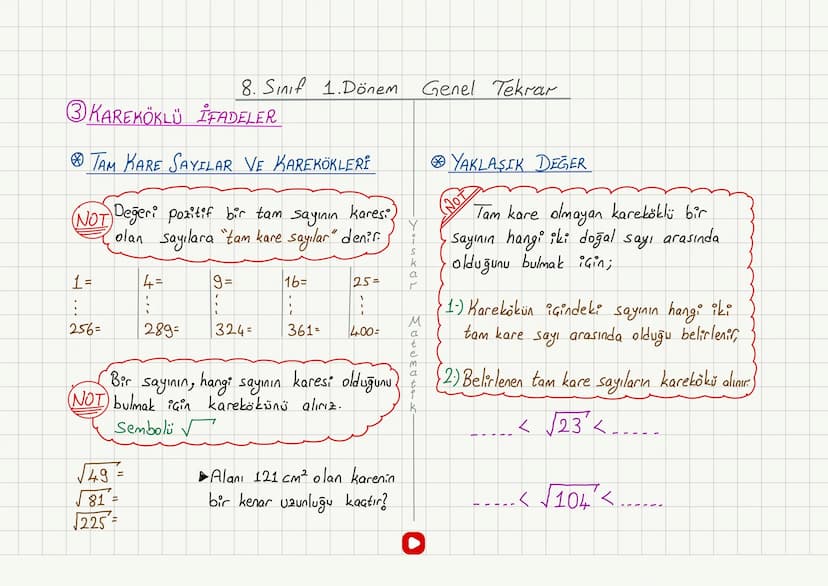 8. Sınıf 1.Dönem Genel Tekrar
③ KAREKÖKLÜ İFADELER
⊛ TAM KARE SAYILAR VE KAREKÖKLERİ
NOT
Değeri pozitif bir tam sayının karesi
olan sayılara "tam kare sayılar" denir.
1= 4= 9= 16= 25=
256= 289= 324= 361= 400=
NOT
Bir sayının, hangi sayının karesi olduğunu
bulmak için karekökünü alırız.
Sembolü √
√49 =
√81 =
√225 =
▶Alanı 121 cm² olan karenin
bir kenar uzunluğu kaçtır?
Yiskar Matematik
⊛ YAKLAŞIK DEĞER
NOT
Tam kare olmayan kareköklü bir
sayının hangi iki doğal sayı arasında
olduğunu bulmak için;
1-) Karekökün içindeki sayının hangi iki
tam kare sayı arasında olduğu belirlenir,
2-) Belirlenen tam kare sayıların karekökü alınır.
..... < √23 < .....
..... < √104 < ......